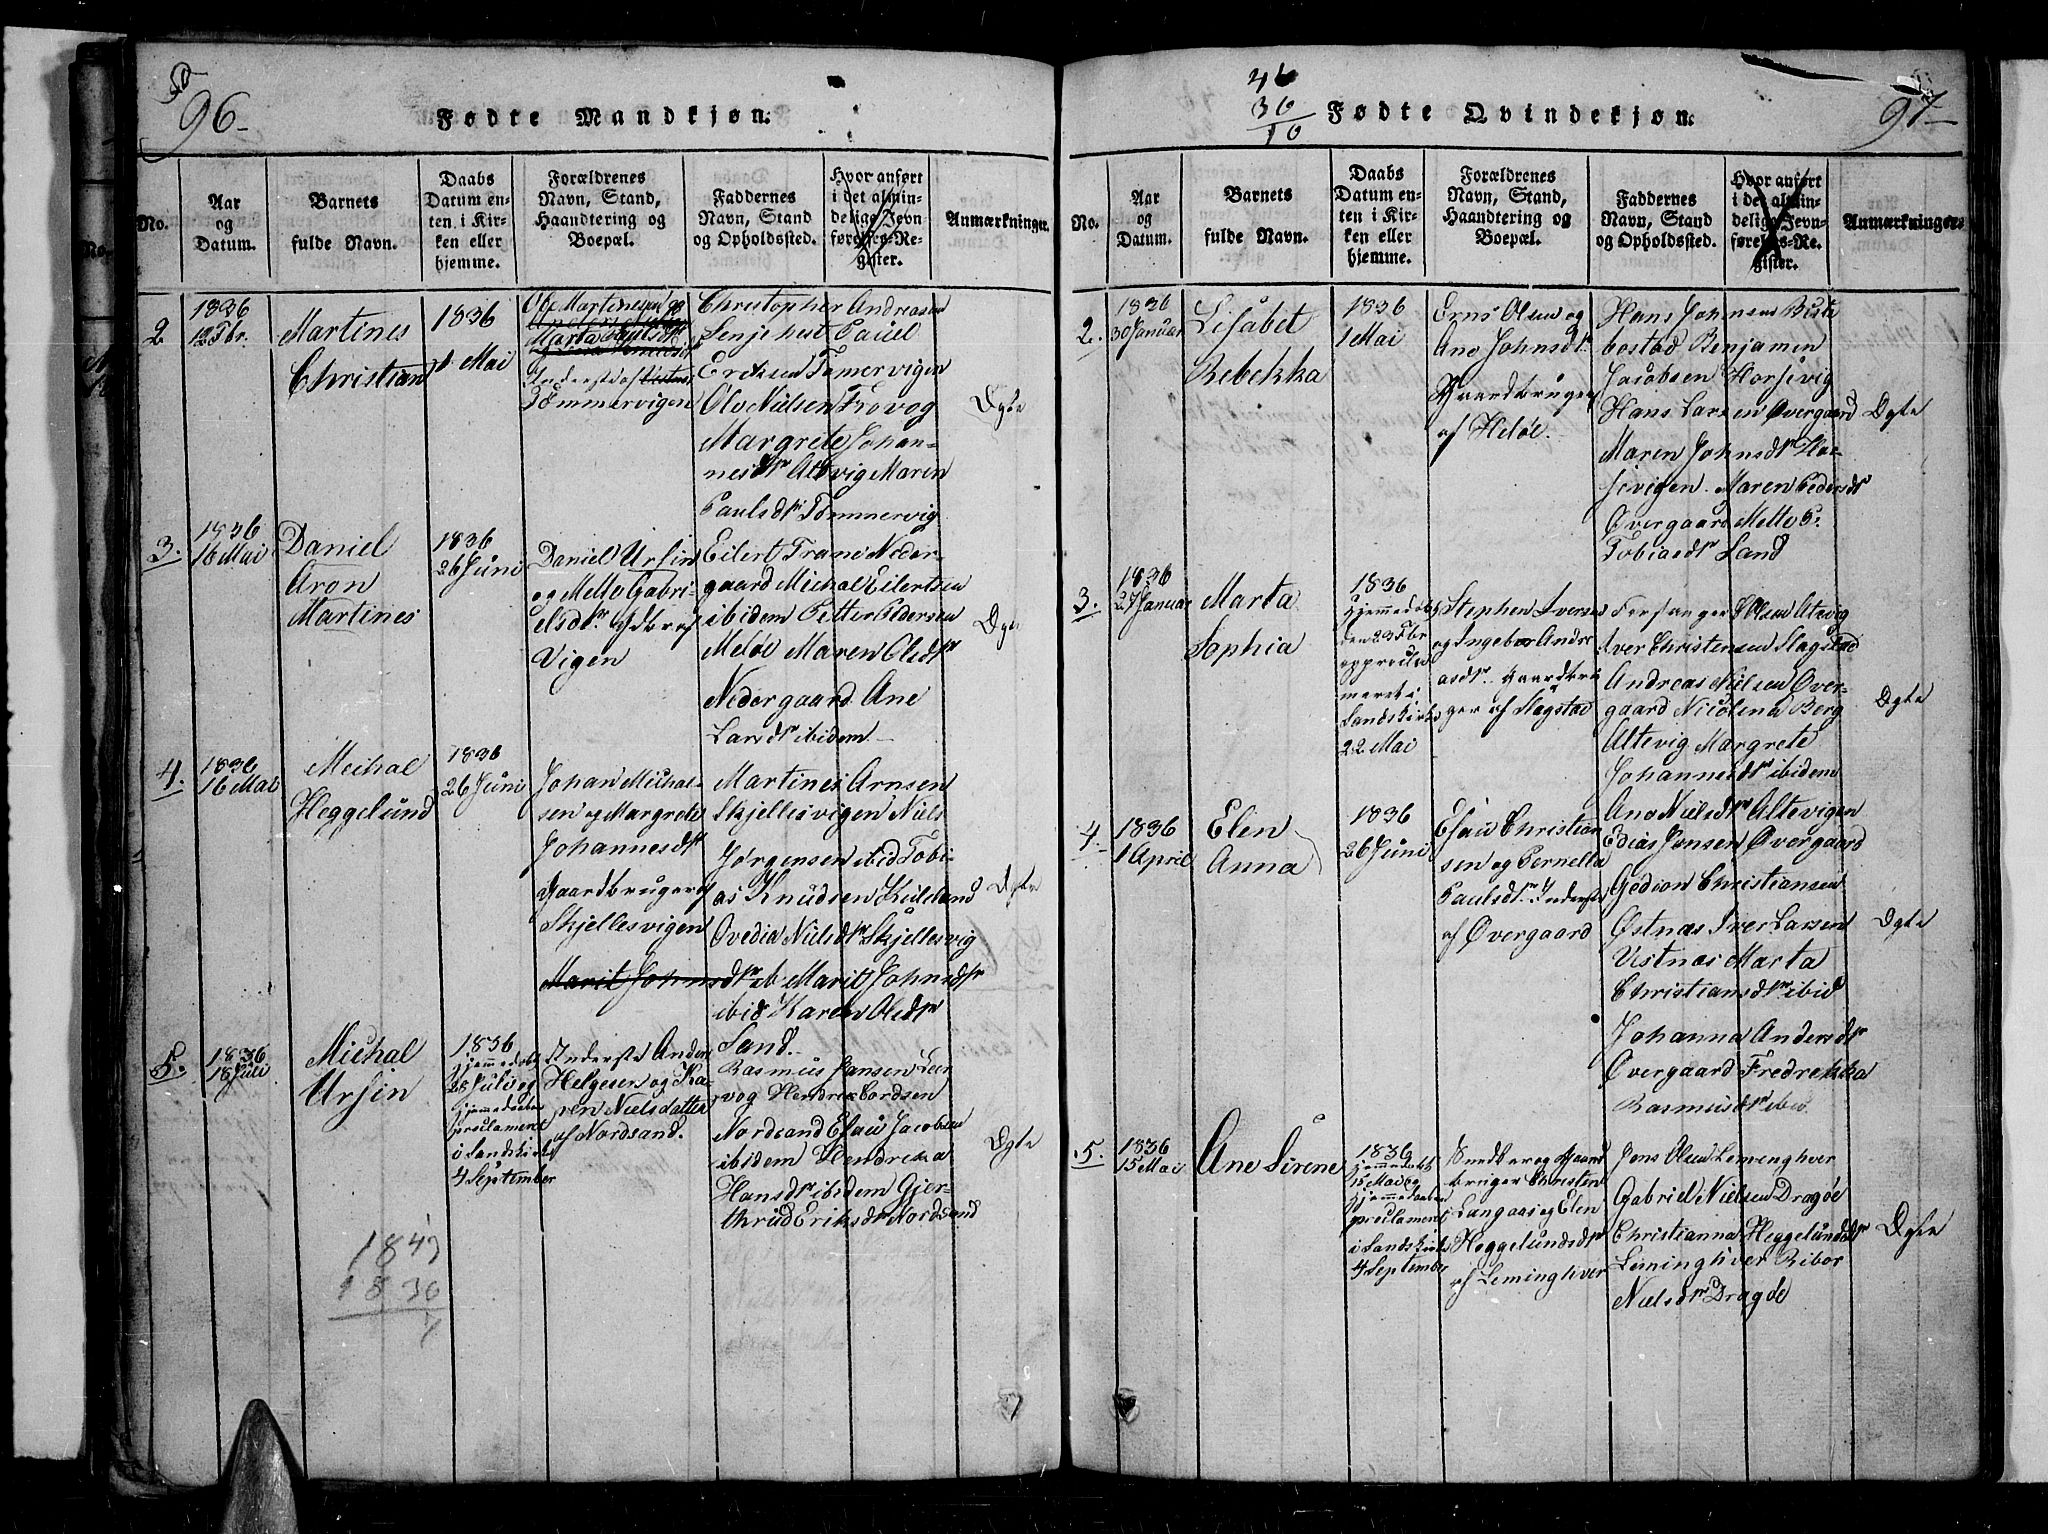 96.
Fødte Mandkjøn.
No.
Aar
og
Datum.
Barnets
fulde Navn.
Daabs
Datum en-
ten i Kir-
ken eller
hjemme.
Forældrenes
Navn, Stand,
Haandtering og
Boepæl.
Faddernes
Navn, Stand
og Opholdssted.
Hvor anført
i det almin-
delige Jevn-
førelses-Re-
gister.
Anmærkninger.
2
1836
12 Fbr.
Martines
Christian
1836
1 Mai
Ole Martinesen og
Marta Paulsdtr
Inderste af
Tömmervigen
Christopher Andreasen
Senjehest Pauel
Eriksen Tömervigen
Ole Nielsen Trovog
Margrete Johan-
nesdtr Altevig Maren
Paulsdtr Tömmervig
Dgte
3.
1836
16 Mai
Daniel
Aron
Martines
1836
26 Juni
Daniel Ursin
og Mette Gabri-
elsdtr. Gdbr af
Vigen
Eilert Trane Neder-
gaard Michal Eilertsen
ibidem Petter Pedersen
Meløe Maren Olsdtr
Nedergaard Ane
Larsdtr ibidem
Dgte
4.
1836
16 Mai
Michal
Heggelund
1836
26 Juni
Johan Michal-
sen og Margrete
Johannesdtr
Gaardbruger af
Skjellesvigen
Martines Arnsen
Skjellesvigen Niels
Jørgensen ibid Tobi-
as Knudsen Kileland
Ovedia Nielsdtr Skjellesvig
Marit Johnsdtr ib Marit Johnsdtr
ibid Karen Olsdtr
Sand.
Dgte
5.
1836
18 Juli
Michal
Ursin
1836
hjemmedøbt
28 Juli og
hjemmedaaben
proclameret
i Sandskirke
4 September
Inderste Anders
Helgesen og Ka-
ren Nielsdatter
af Nordsand.
Rasmus Jansen Leer
vog Hendrik Cordsen
Nordsand Esau Jacobsen
ibidem Hendrika
Hansdtr ibidem Gjer-
thrud Eriksdtr Nordsand
Dgte
1847
1836
46
36
10
Fødte Qvindekjøn.
97
No.
Aar
og
Datum.
Barnets
fulde Navn.
Daabs
Datum en-
ten i Kir-
ken eller
hjemme.
Forældrenes
Navn, Stand,
Haandtering og
Boepæl.
Faddernes
Navn, Stand
og Opholdsted.
Hvor anført
i det almin-
delige Jevn-
førelses-Re-
gister.
Anmærkninger.
2.
1836
30 Januar
Lisabet
Rebekka
1836
1 Mai
Erns Olsen og
Ane Johnsdtr.
Gaardbruger
af Heløe.
Hans Johnsen Biste
bostad Benjamen
Jacobsen Horsevig
Hans Larsen Overgaard
Maren Johnsdtr Hor-
sevigen. Maren Pedersdtr
Overgaard Mette
Tobiasdtr Sand
Dgte
3.
1836
27 Januar
Marta
Sophia
1836
hjemmedøbt
den 23 Fbr
og procla
meret i
Sandskirke
22 Mai
Stephen Iversen
og Ingebor Andre
asdtr. Gaardbru
ger af Slagstad
Olsen Altevig
Iver Christensen Slagstad
Andreas Nielsen Over-
gaard Nicolina Berg
Altevig Margrete
Johannesdtr ibidem
Dgte
4.
1836
1 April
Elen
Anna
1836
26 Juni
Esau Christian
sen og Pernella
Paulsdtr. Inderste
af Øvergaard
Ane Nielsdtr Altevigen
Edias Jensen Øvergaard
Gedion Christiansen
Østnæs Iver Larsen
Vestnæs Marta
Christiansdtr ibid
Johanna Andersdtr
Øvergaard Fredrekka
Rasmusdtr ibid.
Dgte
5.
1836
15 Mai
Ane Sirene
1836
hjemmedøbt
15 Mai og
hjemmedaaben
proclameret
i Sandskirke
4 September
Gaard
bruger Christen
Langaas og Elen
Heggelundsdtr
af Leminghver
Jens Olsen Leminghver
Gabriel Nielsen Dragöe
Christianna Heggelundsdtr
Leminghver Ribor
Nielsdtr Dragöe
Dgte